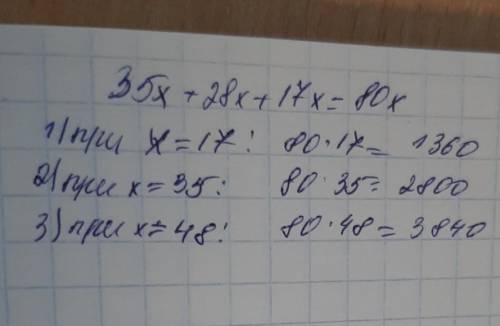 35x + 28x + 17x = 80x
1) при x = 17: 80·17 = 1360
2) при x = 35: 80·35 = 2800
3) при x = 48: 80·48 = 3840